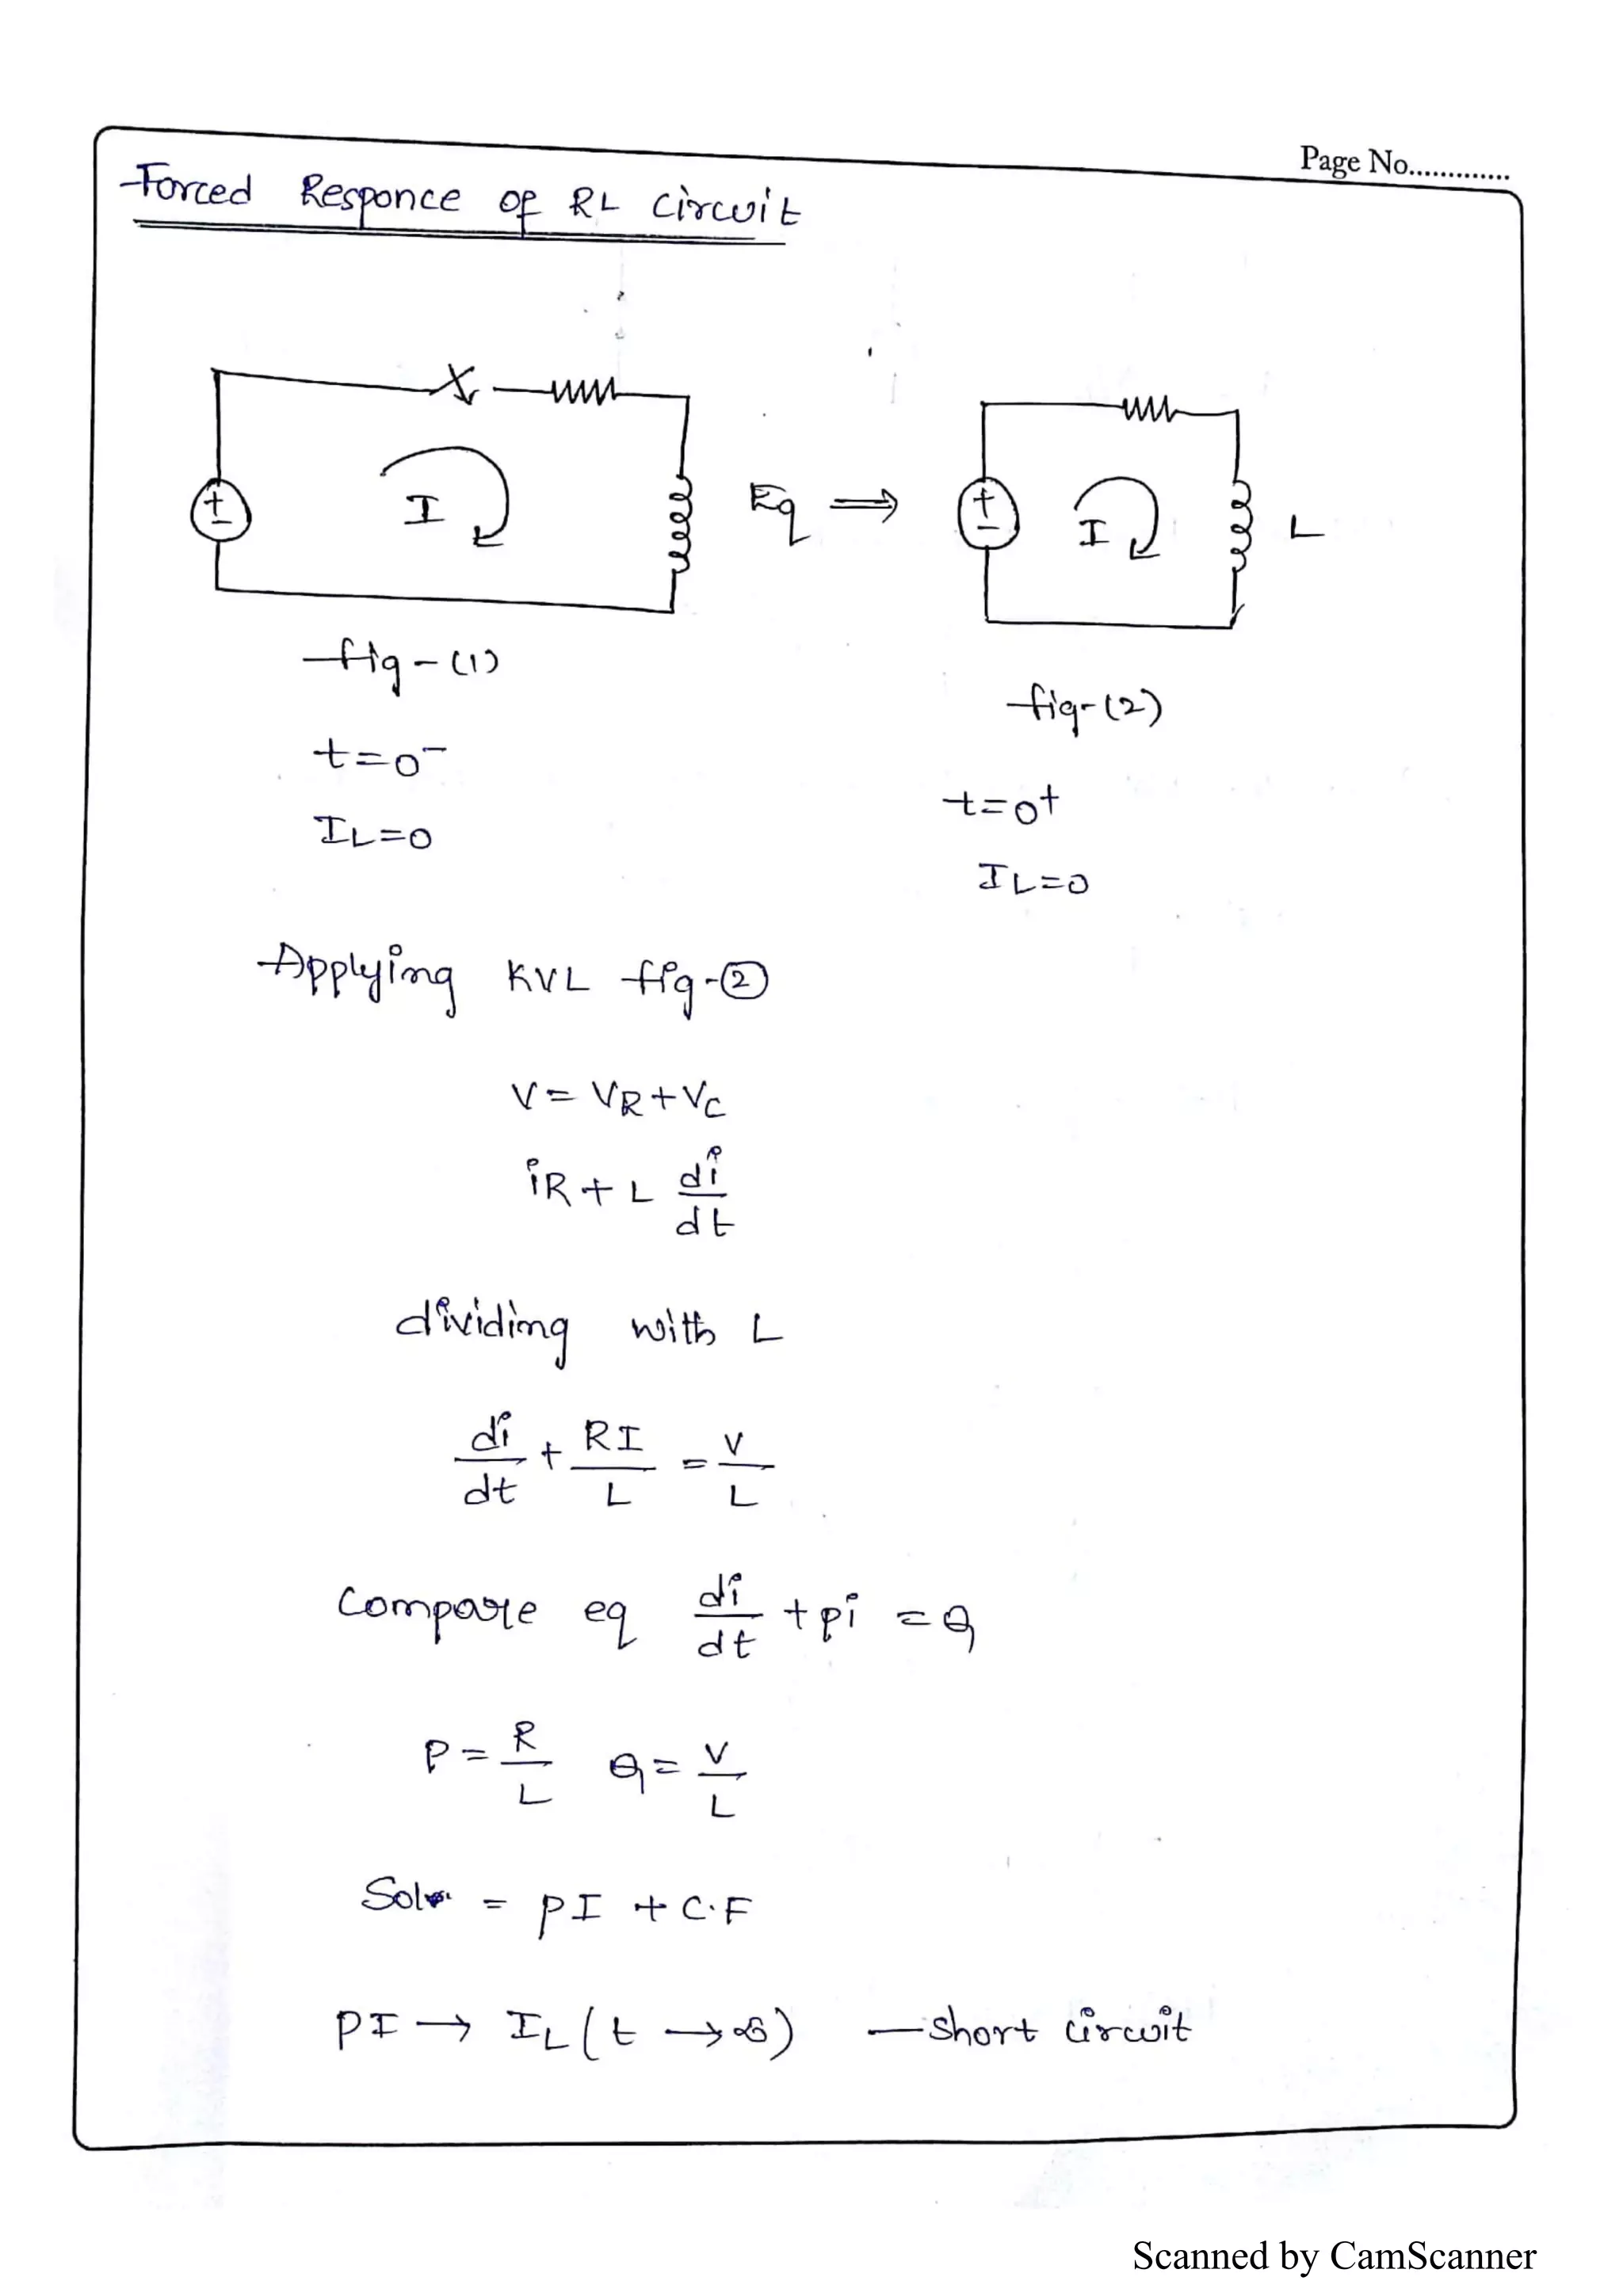 Page No.............
Forced Responce of RL circuit
I
Eq ⟹
I
L
fig-(1)
fig-(2)
t=0⁻
t=0⁺
IL=0
IL=0
Applying KVL fig-②
V = VR + VC
iR + L di/dt
dividing with L
di/dt + RI/L = V/L
compare eq di/dt + pi = Q
P = R/L Q = V/L
Sol = PI + C.F
PI → IL (t → ∞) — short circuit
Scanned by CamScanner